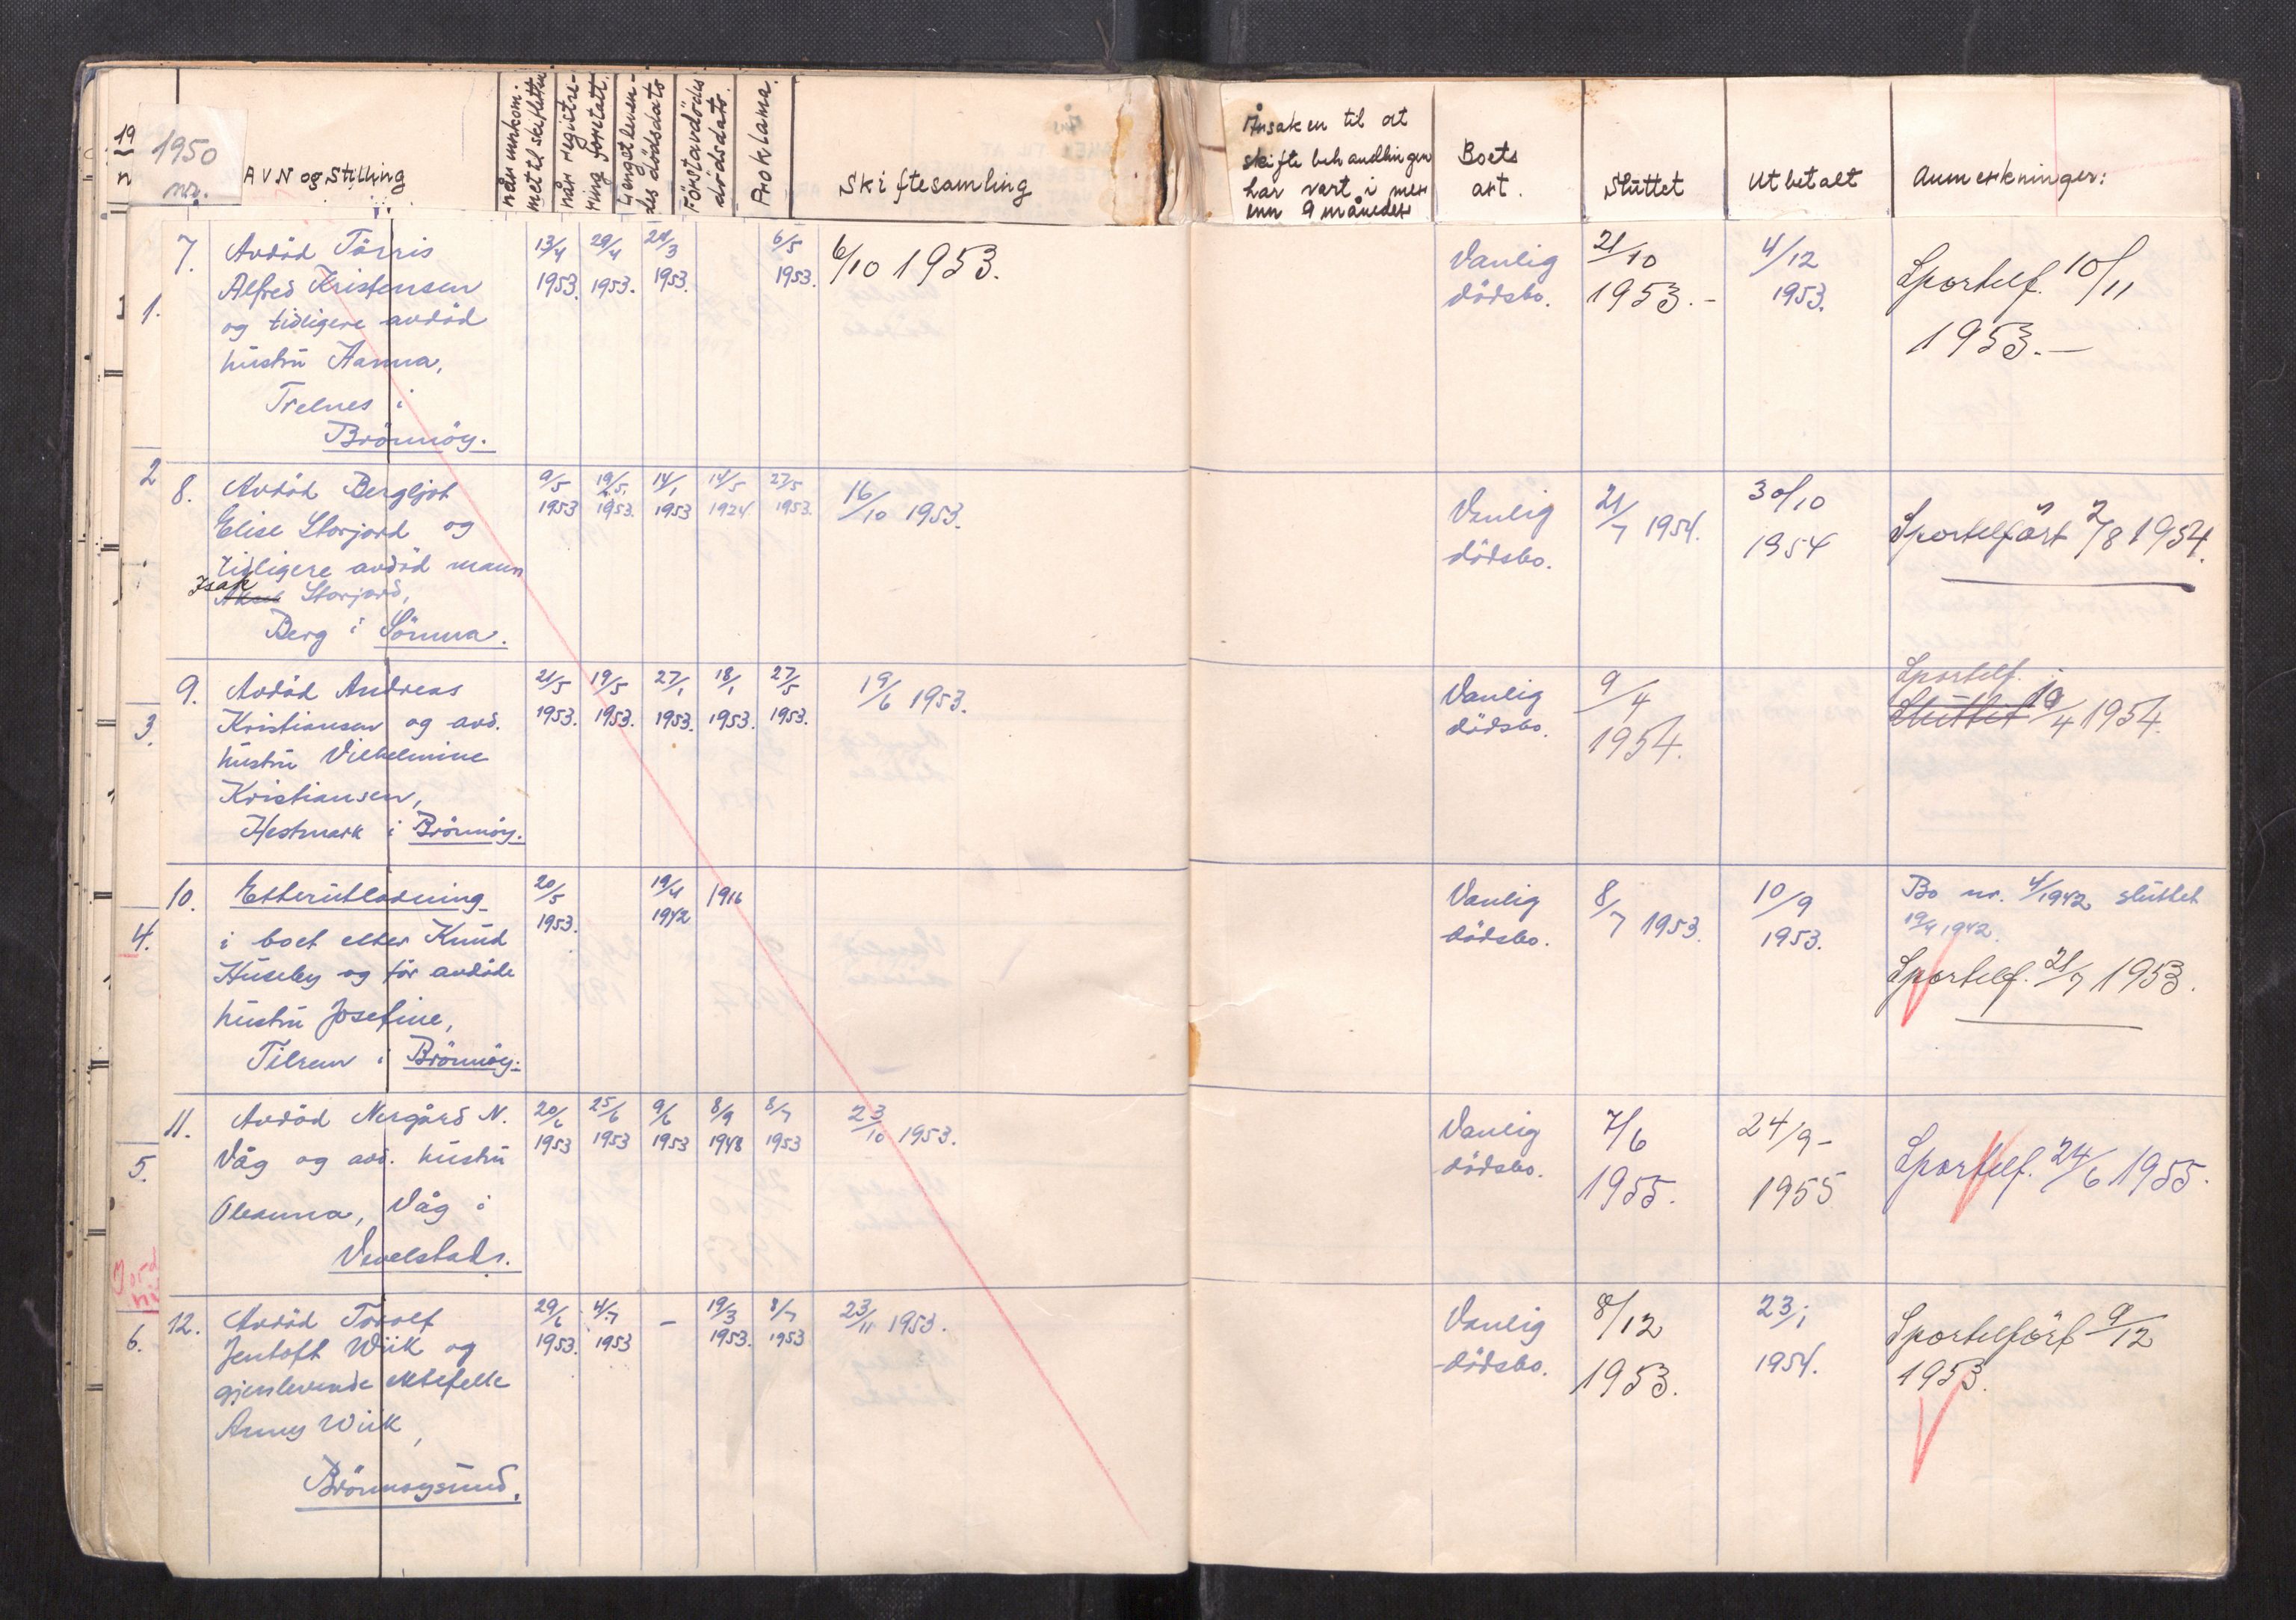 19
n
1950
nr.
AVN og Stilling
når innkom-
met til skifteretten
når registre-
ring foretatt.
Lengstleven-
des dødsdato
Förstavdödes
dödsdato.
Proklama.
Skiftesamling
Årsaken til at
skiftebehandlingen
har vart i mer
enn 9 måneder
Boets
art.
Sluttet
Utbetalt
Anmerkninger:
7. Avdöd Törris
Alfred Kristensen
og tidligere avdöd
hustru Hanna,
Trelnes i
Brönnöy.
13/4 1953. 29/4 1953. 24/3 1953. 6/5 1953. 6/10 1953.
Vanlig
dödsbo.
21/10
1953.-
4/12
1953.
Sportelf. 10/11
1953.-
8. Avdöd Bergljot
Elise Storjord og
tidligere avdöd mann
Isak
Aksel Storjord,
Berg i Sömna.
9/5 1953 19/5 1953. 14/1 1953 14/5 1924 27/5 1953. 16/10 1953.
Vanlig
dödsbo.
21/7 1954.
30/10
1954
Sportelfört 2/8 1954.
9. Avdöd Andreas
Kristiansen og avd.
hustru Vilhelmine
Kristiansen,
Hestmark i Brönnöy.
21/5 1953. 19/5 1953. 27/1 1953. 18/1 1953. 27/5 1953. 19/6 1953.
Vanlig
dödsbo.
9/4
1954.
Sportelf.
Sluttet 19/4 1954.
10. Etterutlodning
i boet etter Knud
Huseby og för avdöde
hustru Josefine,
Tilrem i Brönnöy.
20/5 1953. 19/4 1942 1916
Vanlig
dödsbo.
8/7 1953.
10/9
1953.
Bo nr. 4/1942 sluttet
19/9 1942.
Sportelf. 21/7 1953.
11. Avdöd Nergård N.
Våg og avd. hustru
Oleanna, Våg i
Vevelstad.
20/6 1953 25/6 1953 9/6 1953 8/9 1948 8/7 1953 23/10 1953.
Vanlig
dödsbo.
7/6
1955.
24/9-
1955
Sportelf. 24/6 1955.
12. Avdöd Torolf
Jentoft Wiik og
gjenlevende ektefelle
Anny Wiik,
Brönnöysund.
29/6 1953. 4/7 1953 - 19/3 1953. 8/7 1953 23/11 1953.
Vanlig
dödsbo.
8/12
1953.
23/1
1954.
Sportelfört 9/12
1953.
1.
2
3.
4.
5.
6.